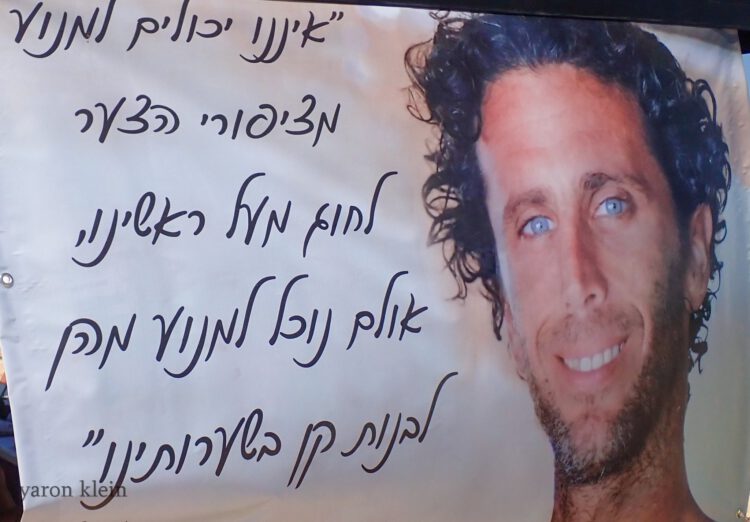 "איננו יכולים למנוע
מציפורי הצער
לחוג מעל ראשינו,
אולם נוכל למנוע מהן
לבנות קן בשערותינו"
yaron klein